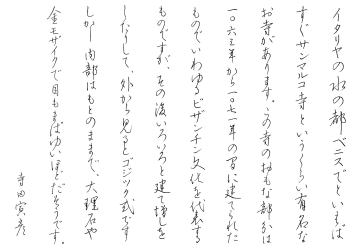 イタリヤの水の都ベニスでといえば
すぐサンマルコ寺というくらい有名な
お寺があります。この寺のおもな部分は
一〇六三年から一〇七一年の間に建てられた
ものでいわゆるビザンチン文化を代表する
ものですが、その後いろいろと建て増しを
したりして、外から見るとゴジック式です
しかし内部はもとのままで、大理石や
金モザイクで目もまばゆいほどだそうです。
寺田寅彦